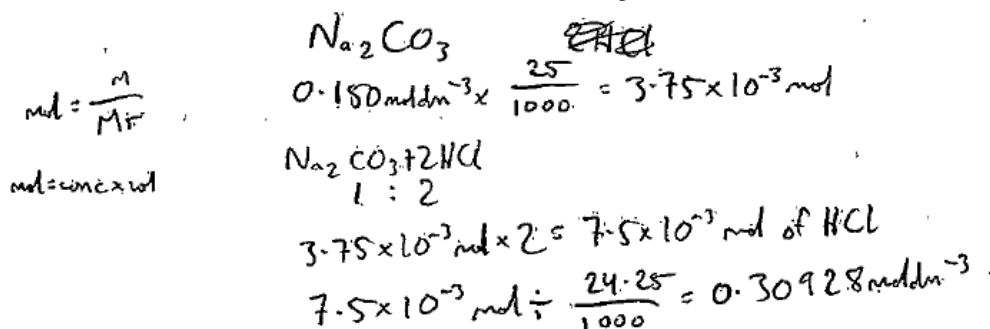 Na₂CO₃
mol = M/Mr
0.150 moldm⁻³ × 25/1000 = 3.75×10⁻³ mol
mol=conc×vol
Na₂CO₃+2HCl
1 : 2
3.75×10⁻³ mol × 2 = 7.5×10⁻³ mol of HCl
7.5×10⁻³ mol ÷ 24.25/1000 = 0.30928 moldm⁻³